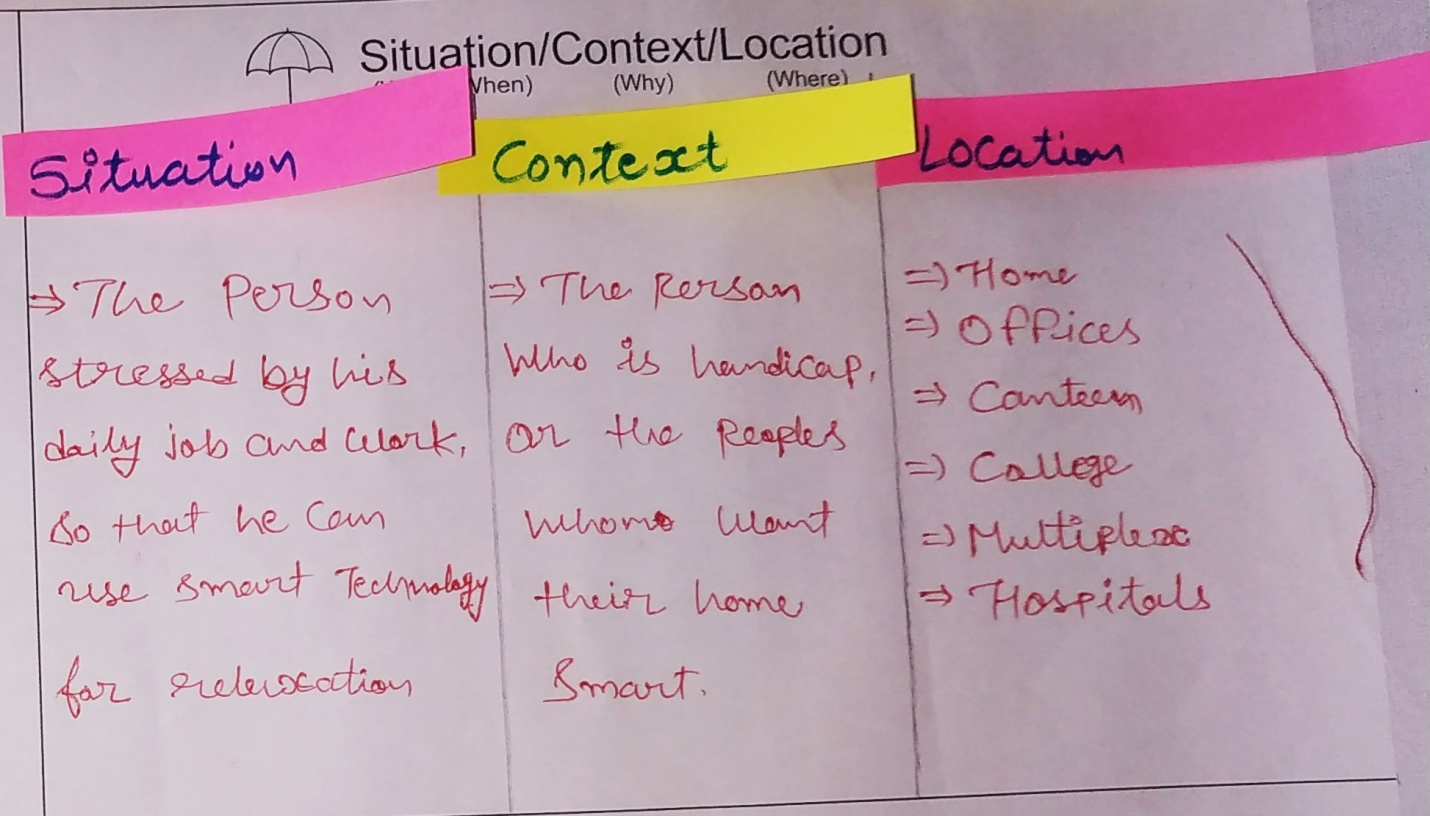 Situation/Context/Location
(When) (Why) (Where)
Situation
Context
Location
⇒ The Person
stressed by his
daily job and work,
so that he can
use smart Technology
for relaxation
⇒ The Person
who is handicap,
or the Peoples
whom want
their home
Smart.
⇒ Home
⇒ Offices
⇒ Canteen
⇒ College
⇒ Multiplex
⇒ Hospitals